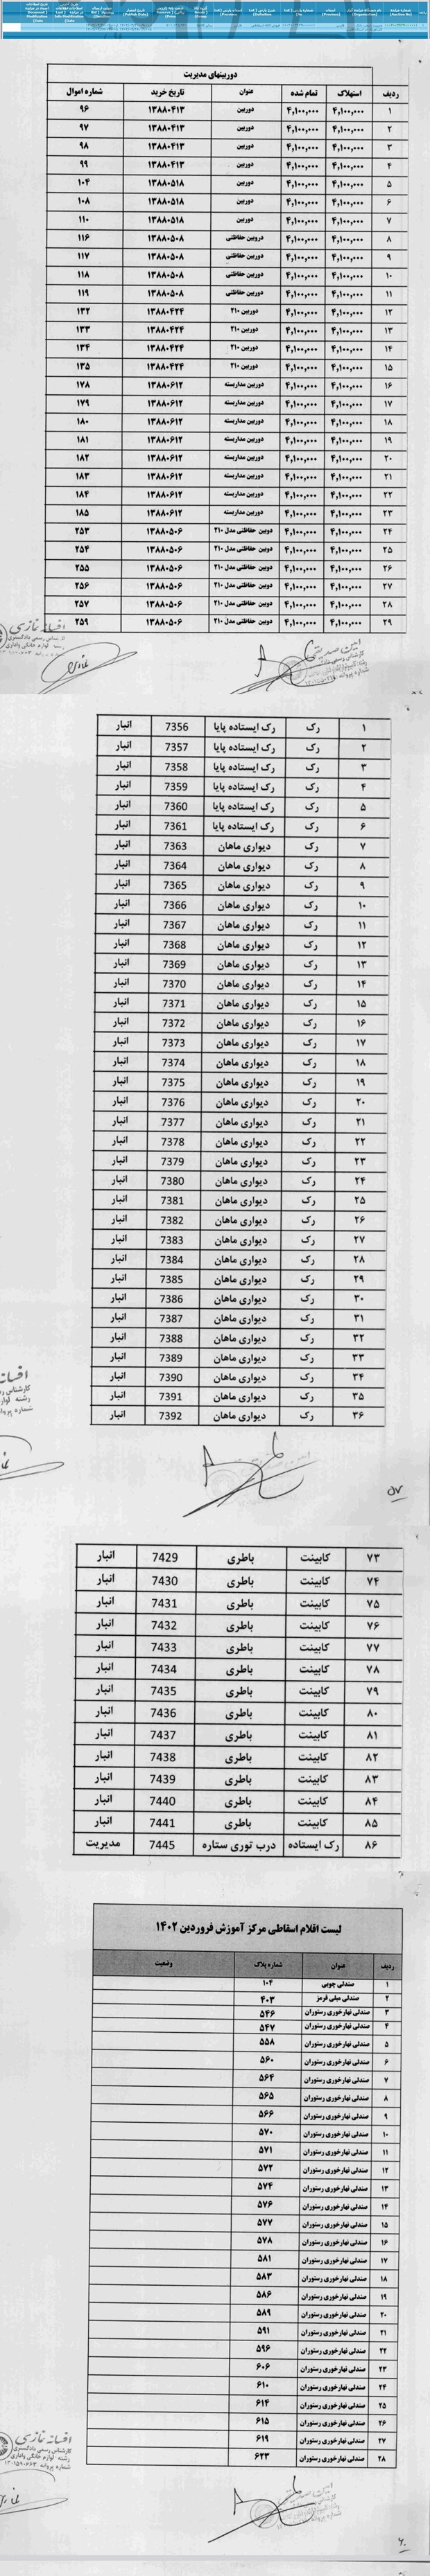 دوربینهای مدیریت
ردیف استهلاک تمام شده عنوان تاریخ خرید شماره اموال
۱ ۴,۱۰۰,۰۰۰ ۴,۱۰۰,۰۰۰ دوربین ۱۳۸۸۰۴۱۳ ۹۶
۲ ۴,۱۰۰,۰۰۰ ۴,۱۰۰,۰۰۰ دوربین ۱۳۸۸۰۴۱۳ ۹۷
۳ ۴,۱۰۰,۰۰۰ ۴,۱۰۰,۰۰۰ دوربین ۱۳۸۸۰۴۱۳ ۹۸
۴ ۴,۱۰۰,۰۰۰ ۴,۱۰۰,۰۰۰ دوربین ۱۳۸۸۰۴۱۳ ۹۹
۵ ۴,۱۰۰,۰۰۰ ۴,۱۰۰,۰۰۰ دوربین ۱۳۸۸۰۵۱۸ ۱۰۴
۶ ۴,۱۰۰,۰۰۰ ۴,۱۰۰,۰۰۰ دوربین ۱۳۸۸۰۵۱۸ ۱۰۸
۷ ۴,۱۰۰,۰۰۰ ۴,۱۰۰,۰۰۰ دوربین ۱۳۸۸۰۵۱۸ ۱۱۰
۸ ۴,۱۰۰,۰۰۰ ۴,۱۰۰,۰۰۰ دروبین حفاظتی ۱۳۸۸۰۵۰۸ ۱۱۶
۹ ۴,۱۰۰,۰۰۰ ۴,۱۰۰,۰۰۰ دوربین حفاظتی ۱۳۸۸۰۵۰۸ ۱۱۷
۱۰ ۴,۱۰۰,۰۰۰ ۴,۱۰۰,۰۰۰ دوربین حفاظتی ۱۳۸۸۰۵۰۸ ۱۱۸
۱۱ ۴,۱۰۰,۰۰۰ ۴,۱۰۰,۰۰۰ دوربین حفاظتی ۱۳۸۸۰۵۰۸ ۱۱۹
۱۲ ۴,۱۰۰,۰۰۰ ۴,۱۰۰,۰۰۰ دوربین ۲۱۰ ۱۳۸۸۰۴۲۴ ۱۳۲
۱۳ ۴,۱۰۰,۰۰۰ ۴,۱۰۰,۰۰۰ دوربین ۲۱۰ ۱۳۸۸۰۴۲۴ ۱۳۳
۱۴ ۴,۱۰۰,۰۰۰ ۴,۱۰۰,۰۰۰ دوربین ۲۱۰ ۱۳۸۸۰۴۲۴ ۱۳۴
۱۵ ۴,۱۰۰,۰۰۰ ۴,۱۰۰,۰۰۰ دوربین ۲۱۰ ۱۳۸۸۰۴۲۴ ۱۳۵
۱۶ ۴,۱۰۰,۰۰۰ ۴,۱۰۰,۰۰۰ دوربین مداربسته ۱۳۸۸۰۶۱۲ ۱۷۸
۱۷ ۴,۱۰۰,۰۰۰ ۴,۱۰۰,۰۰۰ دوربین مداربسته ۱۳۸۸۰۶۱۲ ۱۷۹
۱۸ ۴,۱۰۰,۰۰۰ ۴,۱۰۰,۰۰۰ دوربین مداربسته ۱۳۸۸۰۶۱۲ ۱۸۰
۱۹ ۴,۱۰۰,۰۰۰ ۴,۱۰۰,۰۰۰ دوربین مداربسته ۱۳۸۸۰۶۱۲ ۱۸۱
۲۰ ۴,۱۰۰,۰۰۰ ۴,۱۰۰,۰۰۰ دوربین مداربسته ۱۳۸۸۰۶۱۲ ۱۸۲
۲۱ ۴,۱۰۰,۰۰۰ ۴,۱۰۰,۰۰۰ دوربین مداربسته ۱۳۸۸۰۶۱۲ ۱۸۳
۲۲ ۴,۱۰۰,۰۰۰ ۴,۱۰۰,۰۰۰ دوربین مداربسته ۱۳۸۸۰۶۱۲ ۱۸۴
۲۳ ۴,۱۰۰,۰۰۰ ۴,۱۰۰,۰۰۰ دوربین مداربسته ۱۳۸۸۰۶۱۲ ۱۸۵
۲۴ ۴,۱۰۰,۰۰۰ ۴,۱۰۰,۰۰۰ دوبین حفاظتی مدل ۲۱۰ ۱۳۸۸۰۵۰۶ ۲۵۳
۲۵ ۴,۱۰۰,۰۰۰ ۴,۱۰۰,۰۰۰ دوبین حفاظتی مدل ۲۱۰ ۱۳۸۸۰۵۰۶ ۲۵۴
۲۶ ۴,۱۰۰,۰۰۰ ۴,۱۰۰,۰۰۰ دوبین حفاظتی مدل ۲۱۰ ۱۳۸۸۰۵۰۶ ۲۵۵
۲۷ ۴,۱۰۰,۰۰۰ ۴,۱۰۰,۰۰۰ دوبین حفاظتی مدل ۲۱۰ ۱۳۸۸۰۵۰۶ ۲۵۶
۲۸ ۴,۱۰۰,۰۰۰ ۴,۱۰۰,۰۰۰ دوبین حفاظتی مدل ۲۱۰ ۱۳۸۸۰۵۰۶ ۲۵۷
۲۹ ۴,۱۰۰,۰۰۰ ۴,۱۰۰,۰۰۰ دوبین حفاظتی مدل ۲۱۰ ۱۳۸۸۰۵۰۶ ۲۵۹
۱ رک رک ایستاده پایا 7356 انبار
۲ رک رک ایستاده پایا 7357 انبار
۳ رک رک ایستاده پایا 7358 انبار
۴ رک رک ایستاده پایا 7359 انبار
۵ رک رک ایستاده پایا 7360 انبار
۶ رک رک ایستاده پایا 7361 انبار
۷ رک دیواری ماهان 7363 انبار
۸ رک دیواری ماهان 7364 انبار
۹ رک دیواری ماهان 7365 انبار
۱۰ رک دیواری ماهان 7366 انبار
۱۱ رک دیواری ماهان 7367 انبار
۱۲ رک دیواری ماهان 7368 انبار
۱۳ رک دیواری ماهان 7369 انبار
۱۴ رک دیواری ماهان 7370 انبار
۱۵ رک دیواری ماهان 7371 انبار
۱۶ رک دیواری ماهان 7372 انبار
۱۷ رک دیواری ماهان 7373 انبار
۱۸ رک دیواری ماهان 7374 انبار
۱۹ رک دیواری ماهان 7375 انبار
۲۰ رک دیواری ماهان 7376 انبار
۲۱ رک دیواری ماهان 7377 انبار
۲۲ رک دیواری ماهان 7378 انبار
۲۳ رک دیواری ماهان 7379 انبار
۲۴ رک دیواری ماهان 7380 انبار
۲۵ رک دیواری ماهان 7381 انبار
۲۶ رک دیواری ماهان 7382 انبار
۲۷ رک دیواری ماهان 7383 انبار
۲۸ رک دیواری ماهان 7384 انبار
۲۹ رک دیواری ماهان 7385 انبار
۳۰ رک دیواری ماهان 7386 انبار
۳۱ رک دیواری ماهان 7387 انبار
۳۲ رک دیواری ماهان 7388 انبار
۳۳ رک دیواری ماهان 7389 انبار
۳۴ رک دیواری ماهان 7390 انبار
۳۵ رک دیواری ماهان 7391 انبار
۳۶ رک دیواری ماهان 7392 انبار
۵۷
۷۳ کابینت باطری 7429 انبار
۷۴ کابینت باطری 7430 انبار
۷۵ کابینت باطری 7431 انبار
۷۶ کابینت باطری 7432 انبار
۷۷ کابینت باطری 7433 انبار
۷۸ کابینت باطری 7434 انبار
۷۹ کابینت باطری 7435 انبار
۸۰ کابینت باطری 7436 انبار
۸۱ کابینت باطری 7437 انبار
۸۲ کابینت باطری 7438 انبار
۸۳ کابینت باطری 7439 انبار
۸۴ کابینت باطری 7440 انبار
۸۵ کابینت باطری 7441 انبار
۸۶ رک ایستاده درب توری ستاره 7445 مدیریت
لیست اقلام اسقاطی مرکز آموزش فروردین ۱۴۰۲
ردیف عنوان شماره پلاک وضعیت
۱ صندلی چوبی ۱۰۴
۲ صندلی مبلی قرمز ۴۰۳
۳ صندلی نهارخوری رستوران ۵۴۶
۴ صندلی نهارخوری رستوران ۵۴۷
۵ صندلی نهارخوری رستوران ۵۵۸
۶ صندلی نهارخوری رستوران ۵۶۰
۷ صندلی نهارخوری رستوران ۵۶۴
۸ صندلی نهارخوری رستوران ۵۶۵
۹ صندلی نهارخوری رستوران ۵۶۶
۱۰ صندلی نهارخوری رستوران ۵۷۰
۱۱ صندلی نهارخوری رستوران ۵۷۱
۱۲ صندلی نهارخوری رستوران ۵۷۲
۱۳ صندلی نهارخوری رستوران ۵۷۴
۱۴ صندلی نهارخوری رستوران ۵۷۶
۱۵ صندلی نهارخوری رستوران ۵۷۷
۱۶ صندلی نهارخوری رستوران ۵۷۸
۱۷ صندلی نهارخوری رستوران ۵۸۱
۱۸ صندلی نهارخوری رستوران ۵۸۳
۱۹ صندلی نهارخوری رستوران ۵۸۶
۲۰ صندلی نهارخوری رستوران ۵۸۹
۲۱ صندلی نهارخوری رستوران ۵۹۱
۲۲ صندلی نهارخوری رستوران ۵۹۶
۲۳ صندلی نهارخوری رستوران ۶۰۶
۲۴ صندلی نهارخوری رستوران ۶۱۰
۲۵ صندلی نهارخوری رستوران ۶۱۴
۲۶ صندلی نهارخوری رستوران ۶۱۵
۲۷ صندلی نهارخوری رستوران ۶۱۹
۲۸ صندلی نهارخوری رستوران ۶۲۳
۶۰